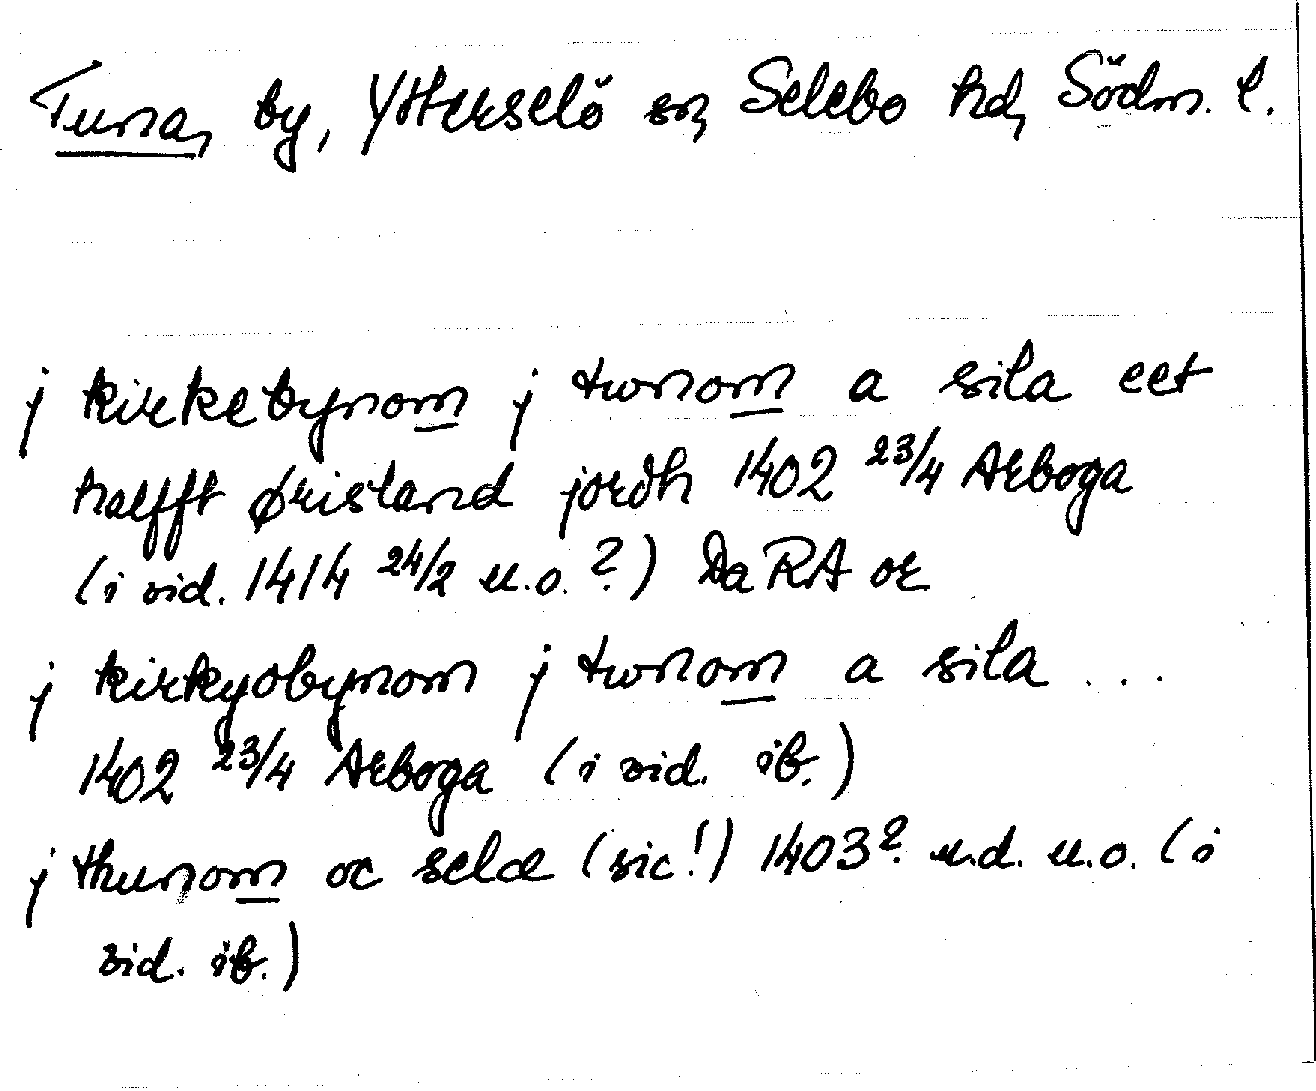 Tuna, by, Ytterselö sn, Selebo hd, Södm. l.
j kirkebynom j twnom a sila eet
halfft ørisland jordh 1402 23/4 Arboga
(i vid. 1414 24/2 u.o.?) Da RA or
j kirkyobynom j twnom a sila ...
1402 23/4 Arboga (i vid. ib.)
j thunom oc selæ (sic!) 1403? u.d. u.o. (i
vid. ib.)